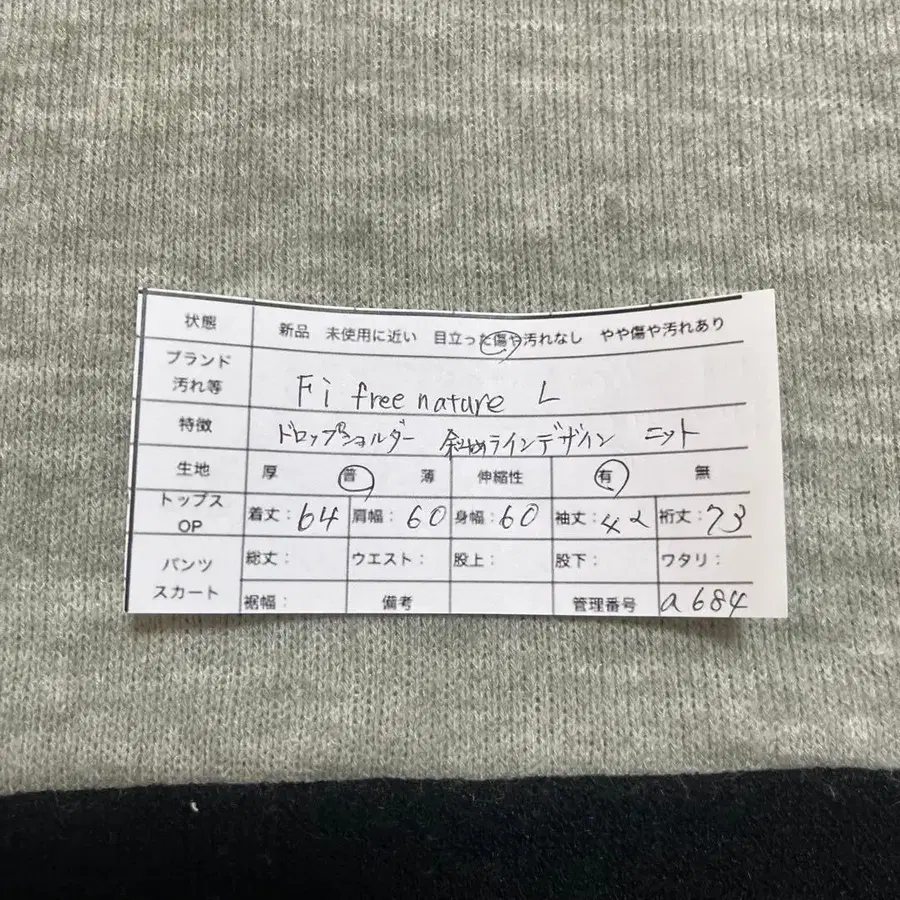 状態 新品 未使用に近い 目立った傷や汚れなし やや傷や汚れあり
ブランド
汚れ等 Fi free nature L
特徴 ドロップショルダー 斜めラインデザイン ニット
生地 厚 普 薄 伸縮性 有 無
トップス
OP 着丈：64 肩幅：60 身幅：60 袖丈：42 裄丈：73
パンツ
スカート 総丈： ウエスト： 股上： 股下： ワタリ：
裾幅： 備考 管理番号 a684